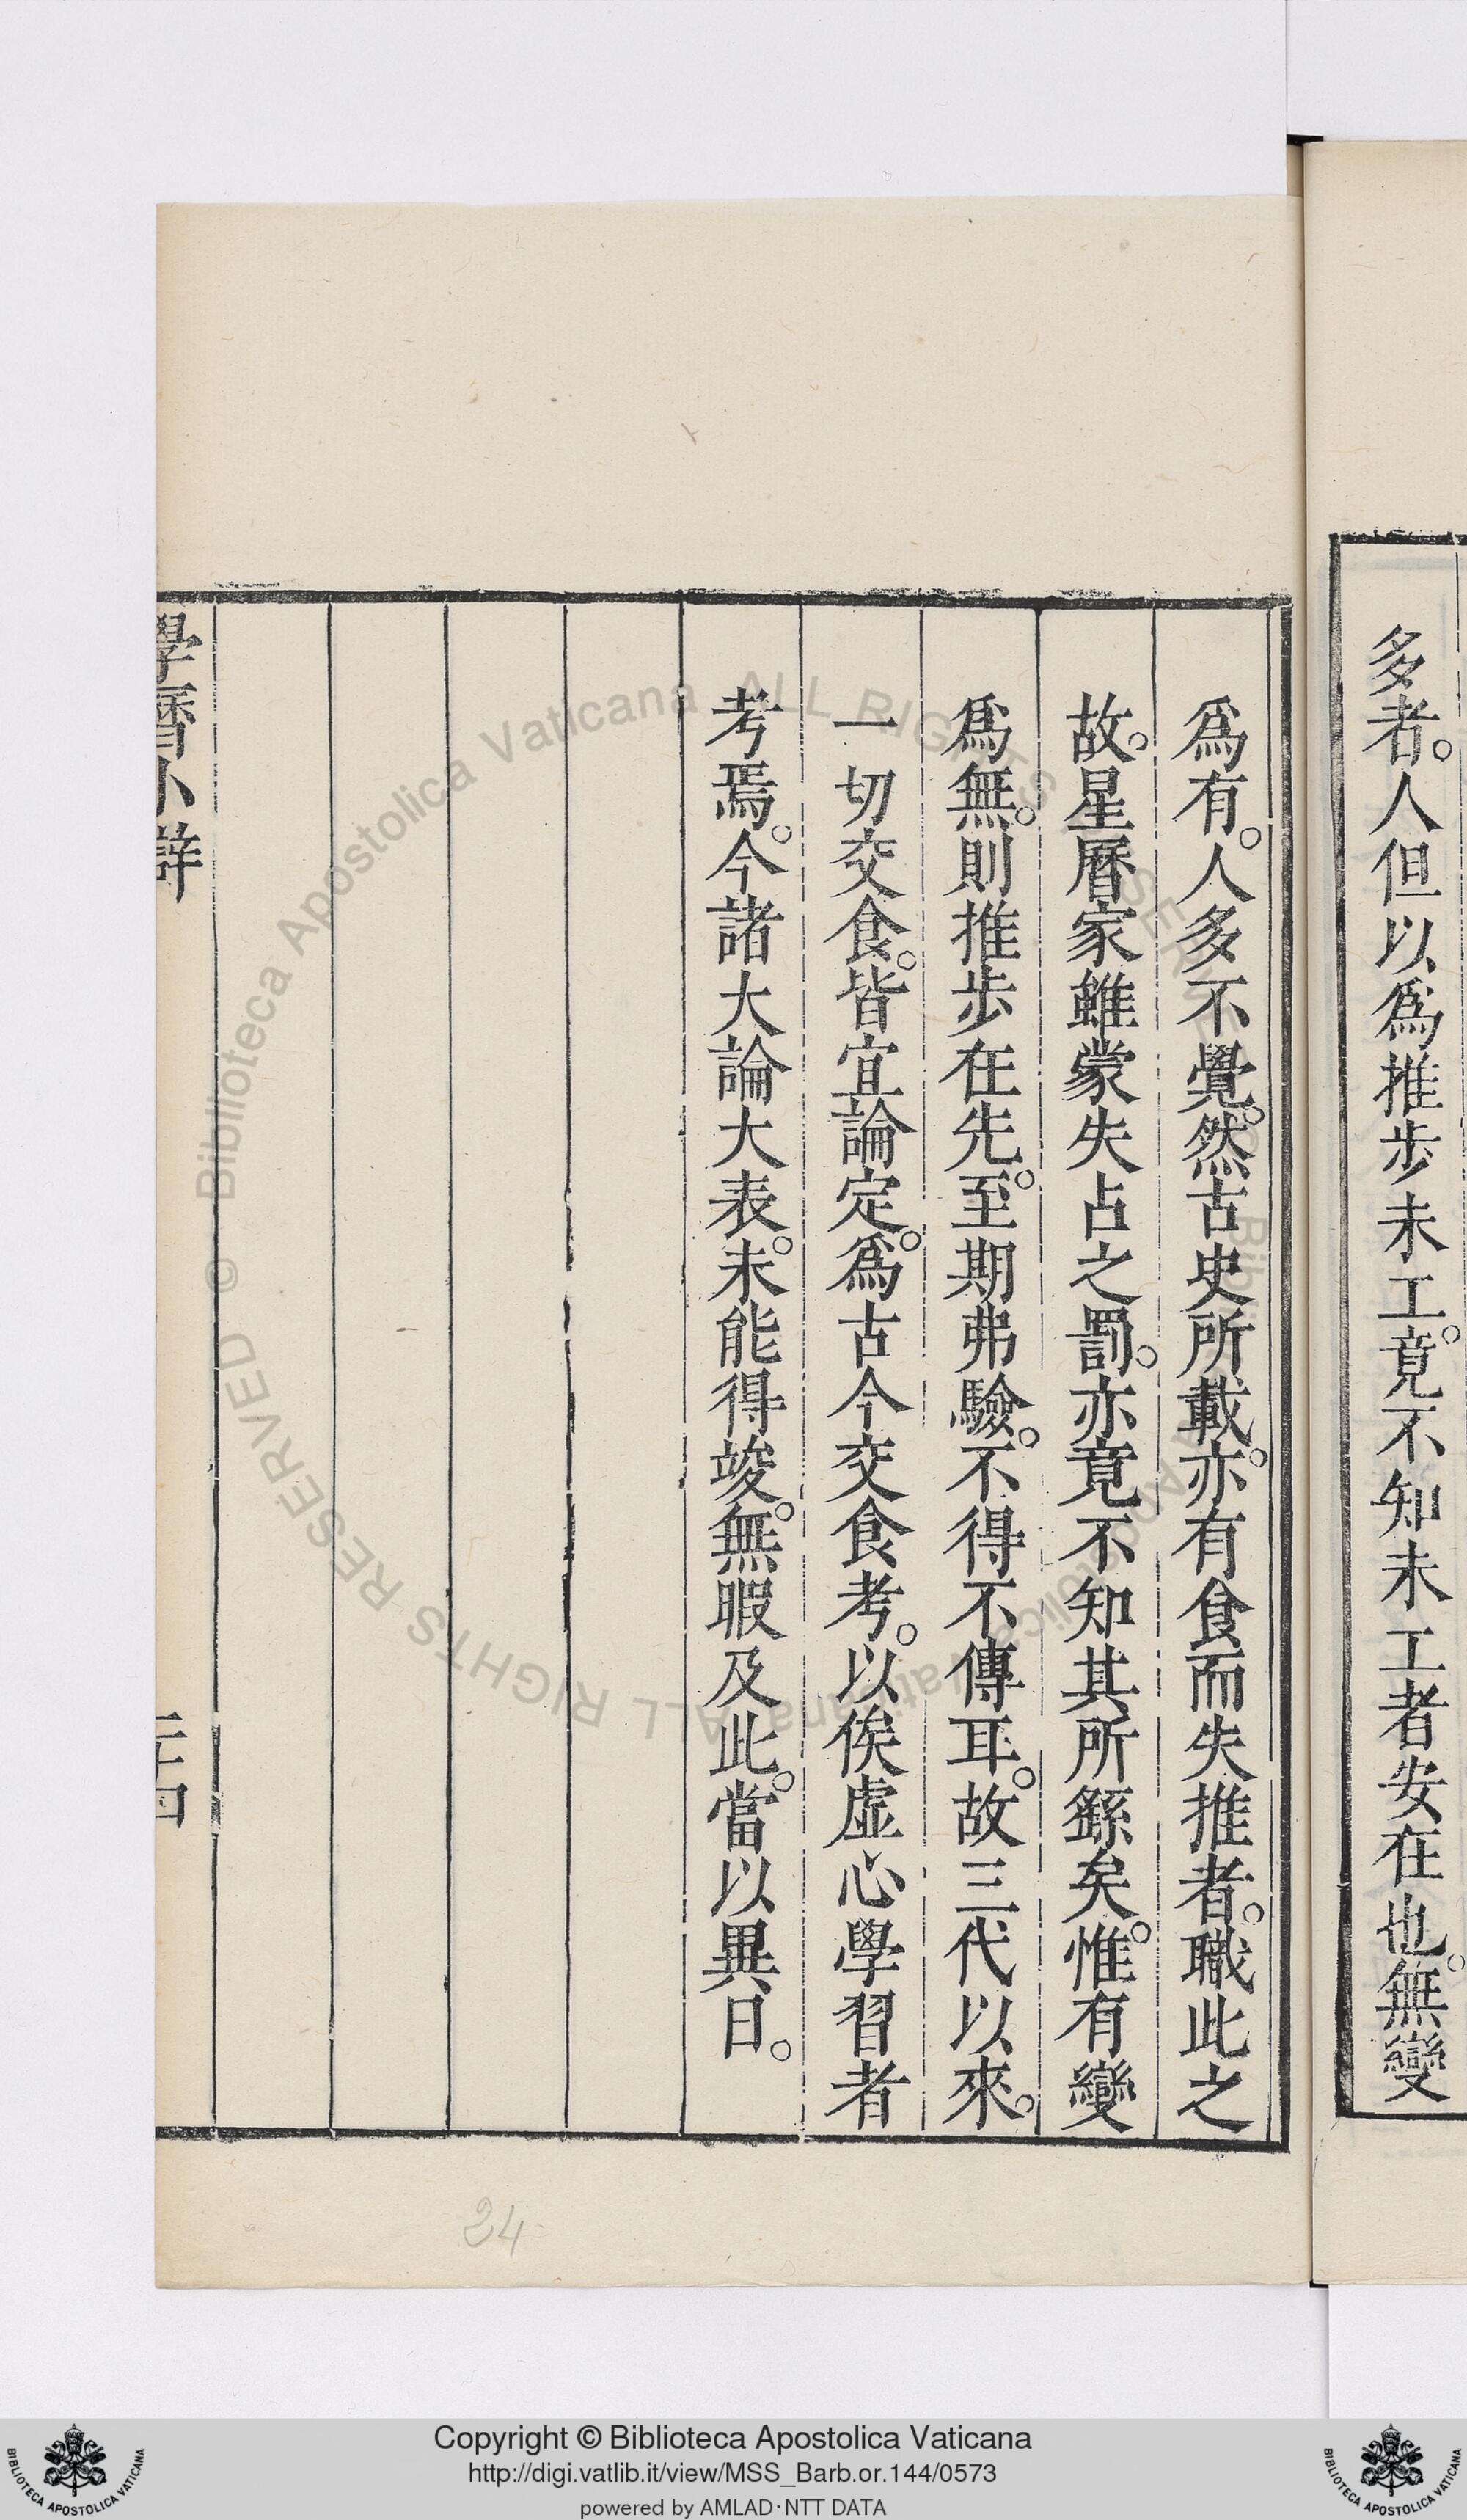 多者。人但以爲推步未工。竟不知未工者安在也。無變
爲有。人多不覺。然古史所載。亦有食而失推者。職此之
故。星曆家雖蒙失占之罰。亦竟不知其所繇矣。惟有變
爲無。則推步在先。至期弗驗。不得不傳耳。故三代以來。
一切交食。皆宜論定。爲古今交食考。以俟虛心學習者
考焉。今諸大論大表。未能得竣。無暇及此。當以異日。
學曆小辯
二十四
24
Copyright © Biblioteca Apostolica Vaticana
http://digi.vatlib.it/view/MSS_Barb.or.144/0573
powered by AMLAD·NTT DATA